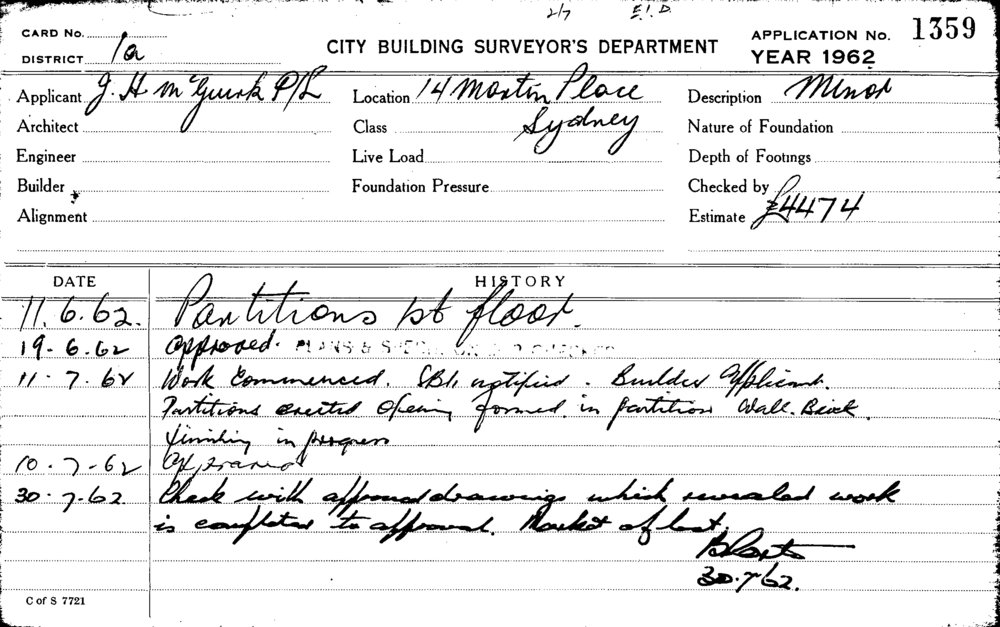 2/7 E.I.D.
CARD No.
DISTRICT 1a
CITY BUILDING SURVEYOR'S DEPARTMENT
APPLICATION No. 1359
YEAR 1962
Applicant J. H. McGuirk P/L
Location 14 Martin Place
Description Minor
Architect
Class Sydney
Nature of Foundation
Engineer
Live Load
Depth of Footings
Builder
Foundation Pressure
Checked by
Alignment
Estimate £4474
DATE HISTORY
11.6.62. Partitions 1st floor.
19.6.62 Approved. PLANS & SPEC.
11.7.62 Work Commenced. notified. Builder Applicant.
Partitions erected opening formed in partition Wall. Brick
finishing in progress
10.7.62
30.7.62 Check with approved drawings which revealed work
is completed to approval. Market off last.
30.7.62.
C of S 7721